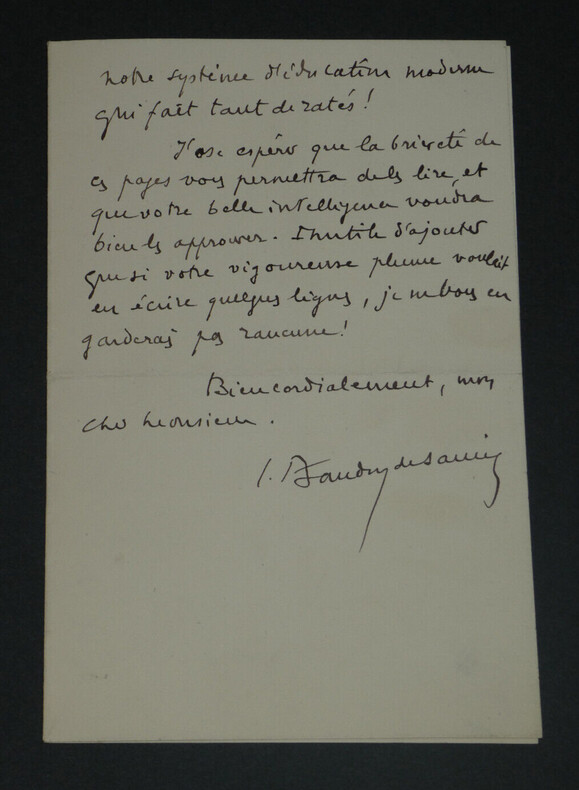 notre système d'éducation moderne
qui fait tant de ratés!
J'ose espérer que la brièveté de
ces pages vous permettra de les lire, et
que votre belle intelligence voudra
bien les approuver. Inutile d'ajouter
que si votre vigoureuse plume voulait
en écrire quelques lignes, je ne vous en
garderais pas rancune!
Bien cordialement, mon
cher Monsieur.
L. Baudry de Saunier